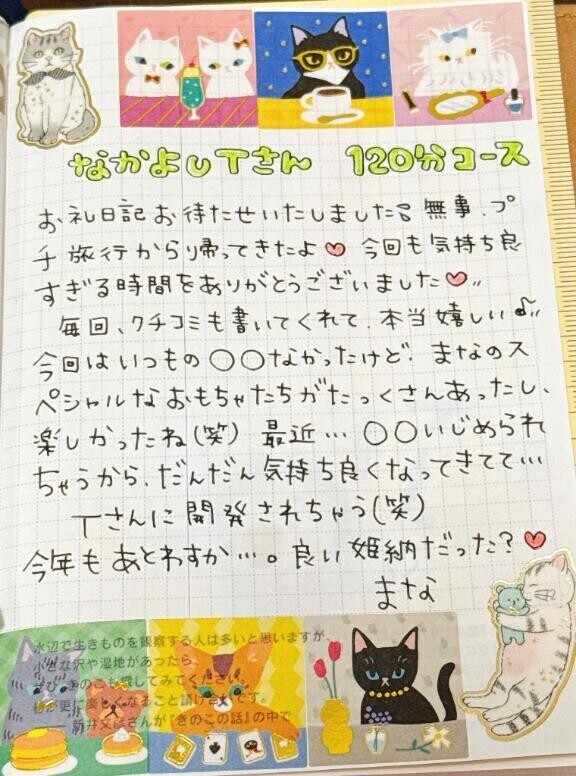 なかよしTさん 120分コース
お礼日記お待たせいたしました 無事、プ
チ旅行から帰ってきたよ♥ 今回も気持ち良
すぎる時間をありがとうございました♥〃
毎回、クチコミも書いてくれて、本当嬉しい♪〃
今回はいつもの〇〇なかったけど、まなのス
ペシャルなおもちゃたちがたっくさんあったし、
楽しかったね(笑) 最近… 〇〇いじめられ
ちゃうから、だんだん気持ち良くなってきてて…
Tさんに開発されちゃう(笑)
今年もあとわすか…。良い姫納だった?♥
まな
水辺で生きものを観察する人は多いと思いますが、
小さな沢や湿地があったら、
ぜひ、きのこも探してみてください。
新井文彦さんが『きのこの話』の中で